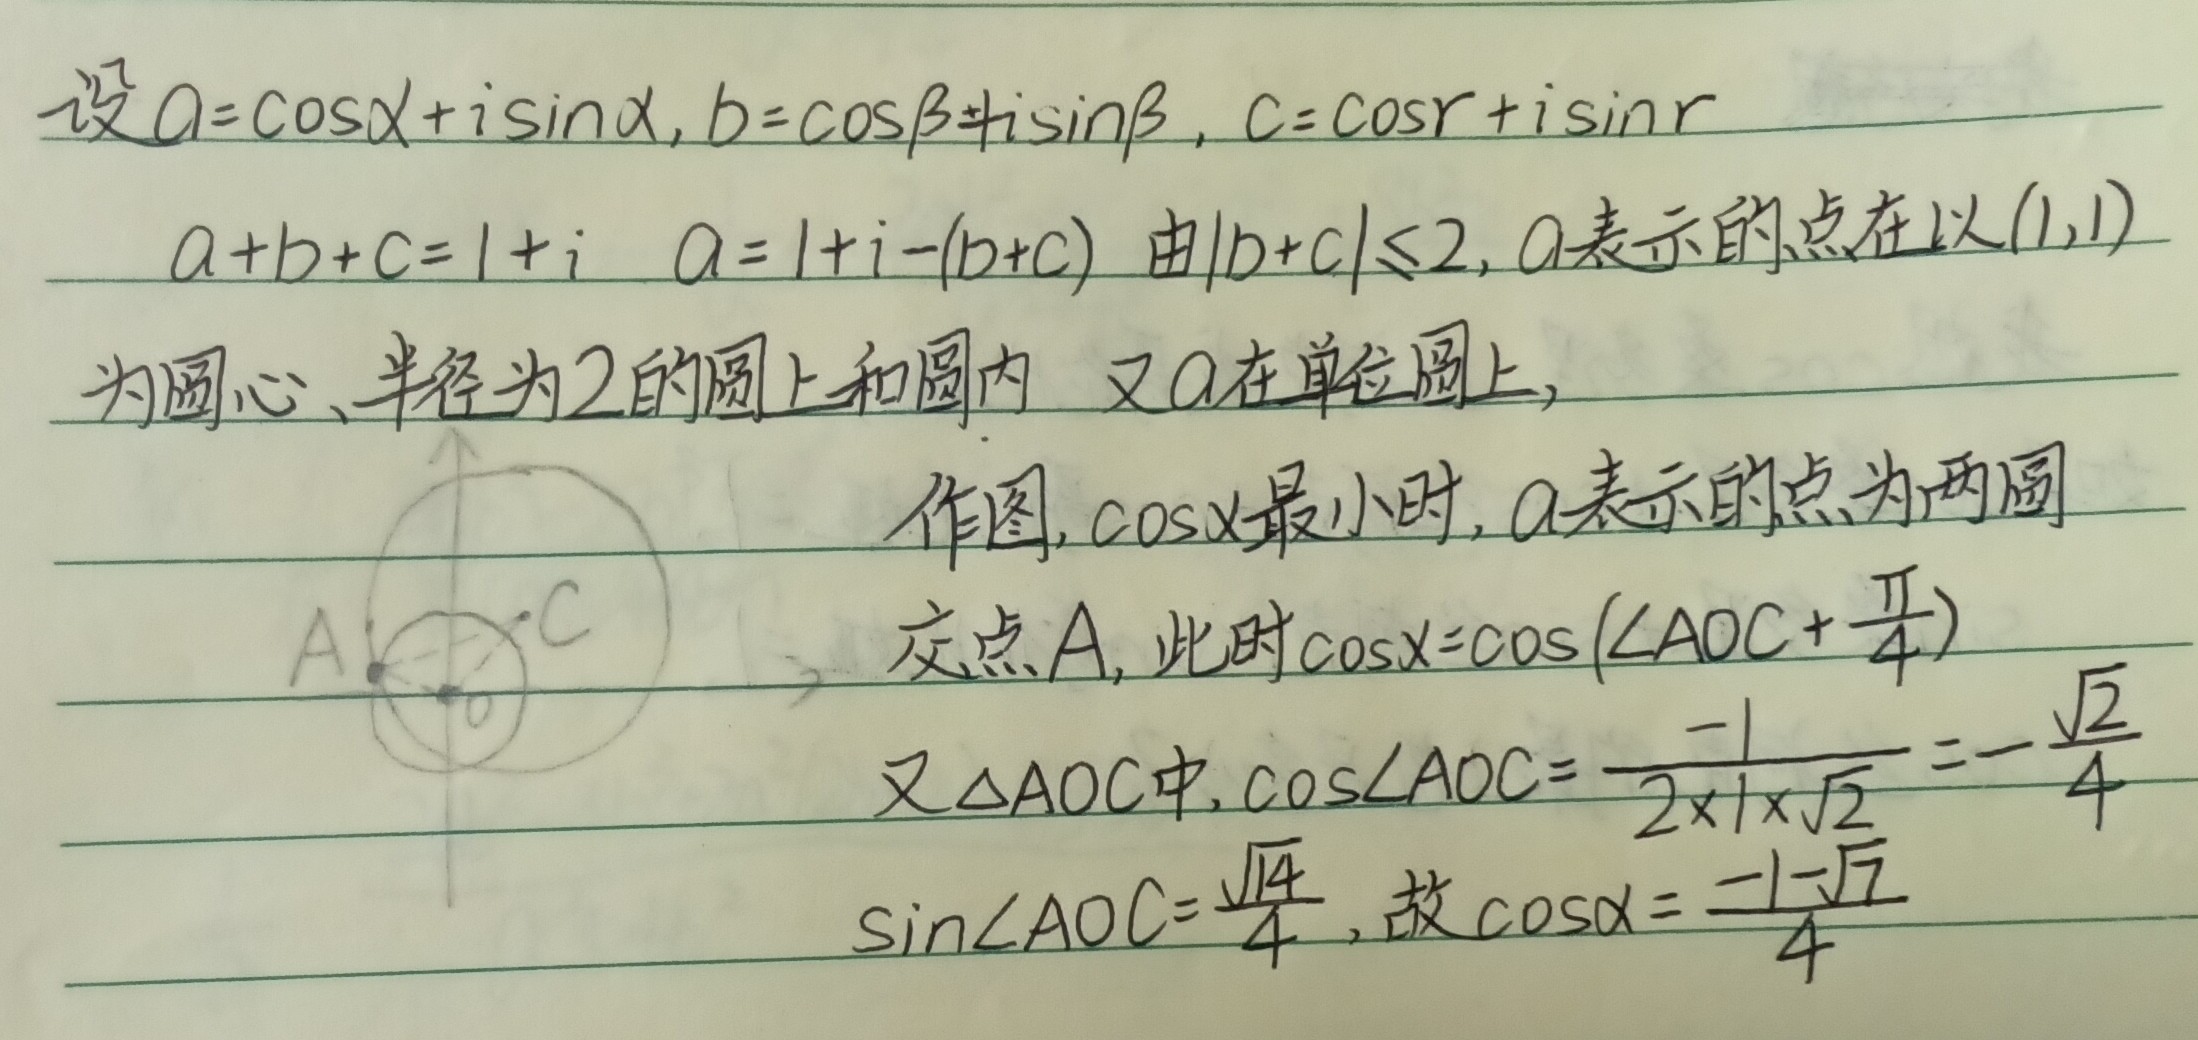 设a=cosα+isinα, b=cosβ+isinβ, c=cosr+isinr
a+b+c=1+i a=1+i-(b+c) 由|b+c|≤2, a表示的点在以(1,1)
为圆心、半径为2的圆上和圆内 又a在单位圆上,
作图, cosα最小时, a表示的点为两圆
交点A, 此时cosα=cos(∠AOC+π/4)
又△AOC中, cos∠AOC=-1/(2×1×√2)=-√2/4
sin∠AOC=√14/4, 故cosα=(-1-√7)/4
A
C
O